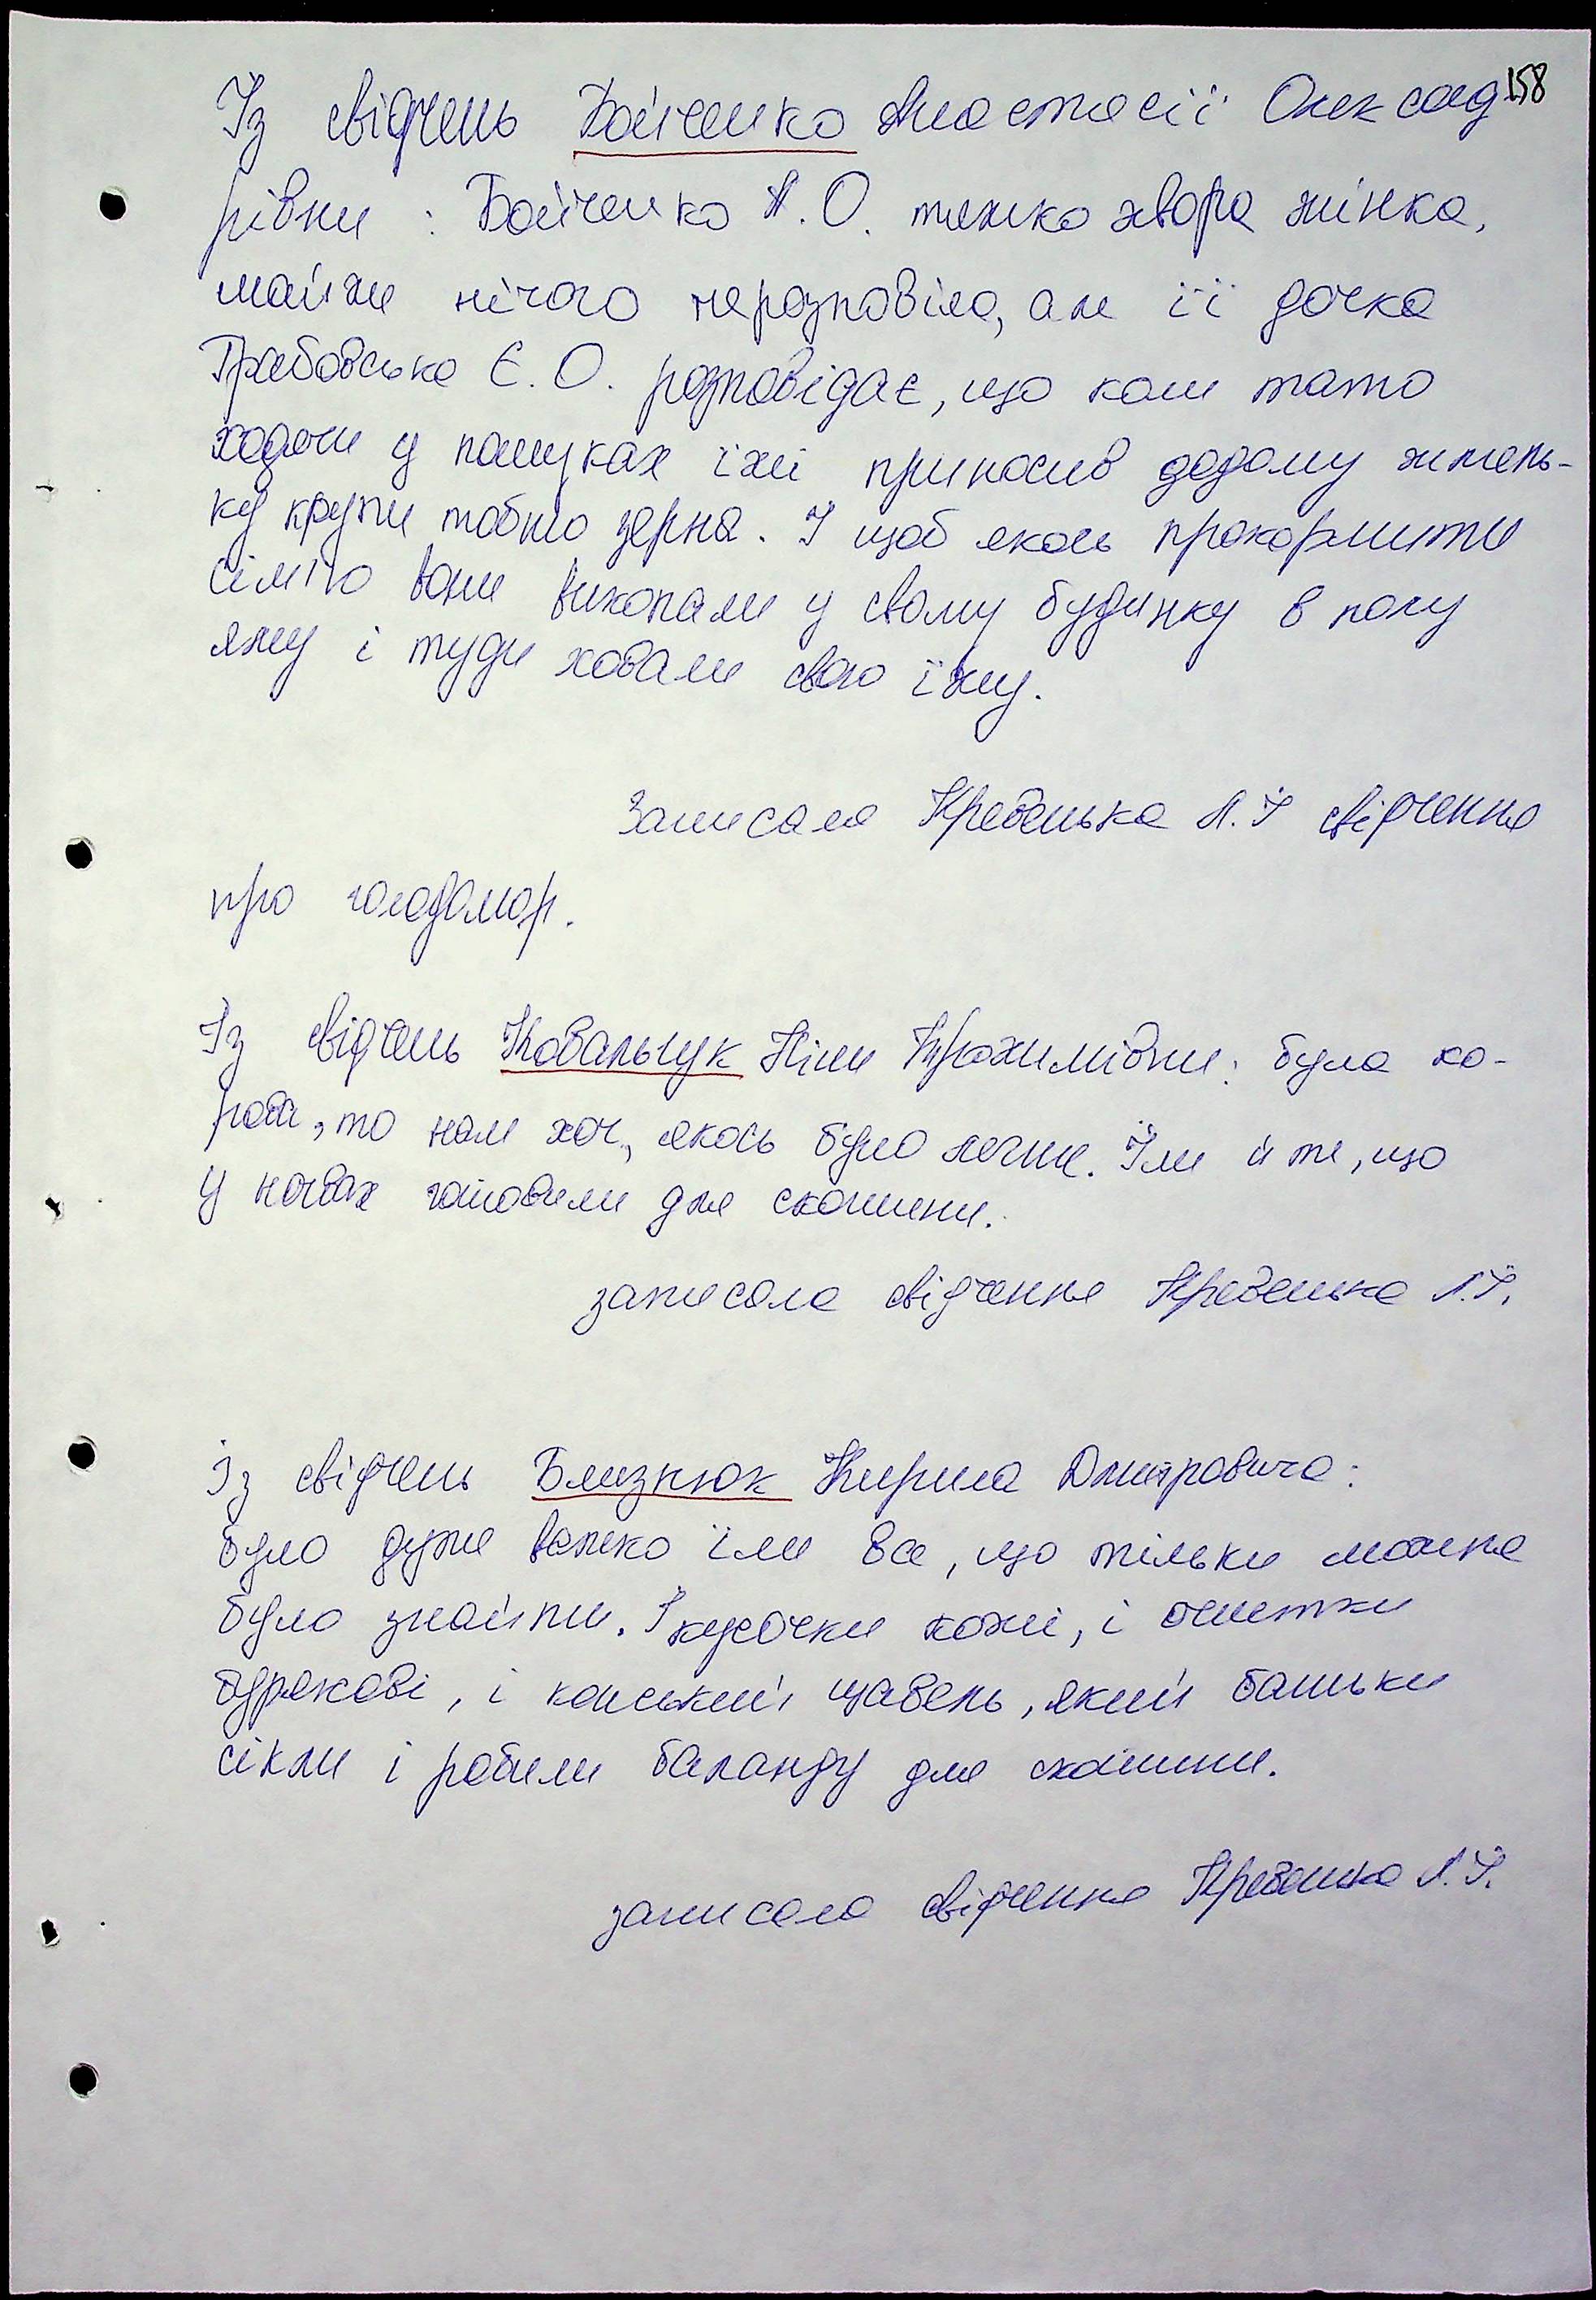 158
Із свідчень Бойченко Анастасії Олександ
рівни : Бойченко А. О. тяжко хвора жінка,
майже нічого нерозповіла, але її дочка
Грабовська Є. О. розповідає, що коли тато
ходячи у пошуках їжі приносив додому жмень-
ку крупи тобто зерна. І щоб якось прокормити
сім'ю вони викопали у свому будинку в полу
яму і туди ховали свою їжу.
Записала свідчення
про голодомор.
Із свідчень Ковальчук Ніни Трохимівни: була ко-
рова, то нам хоч, якось було легше. Їли й те, що
у ночвах готовили для скотини.
записала свідчення
Із свідчень Близнюк Кирила Дмитровича:
було дуже важко їли все, що тільки можна
було знайти. І кусочки кожі, і очистки
бурякові, і конський щавель, який батьки
сікли і робили баланду для скотини.
записала свідчення